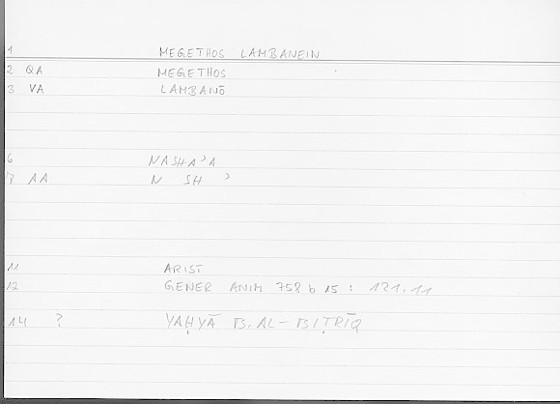 1 MEGETHOS LAMBANEIN
2 QA MEGETHOS
3 VA LAMBANŌ
6 NASHAʾA
7 AA N SH ʾ
11 ARIST
12 GENER ANIM 758 b 15 : 121.11
14 ? YAḤYĀ B. AL-BIṬRĪQ